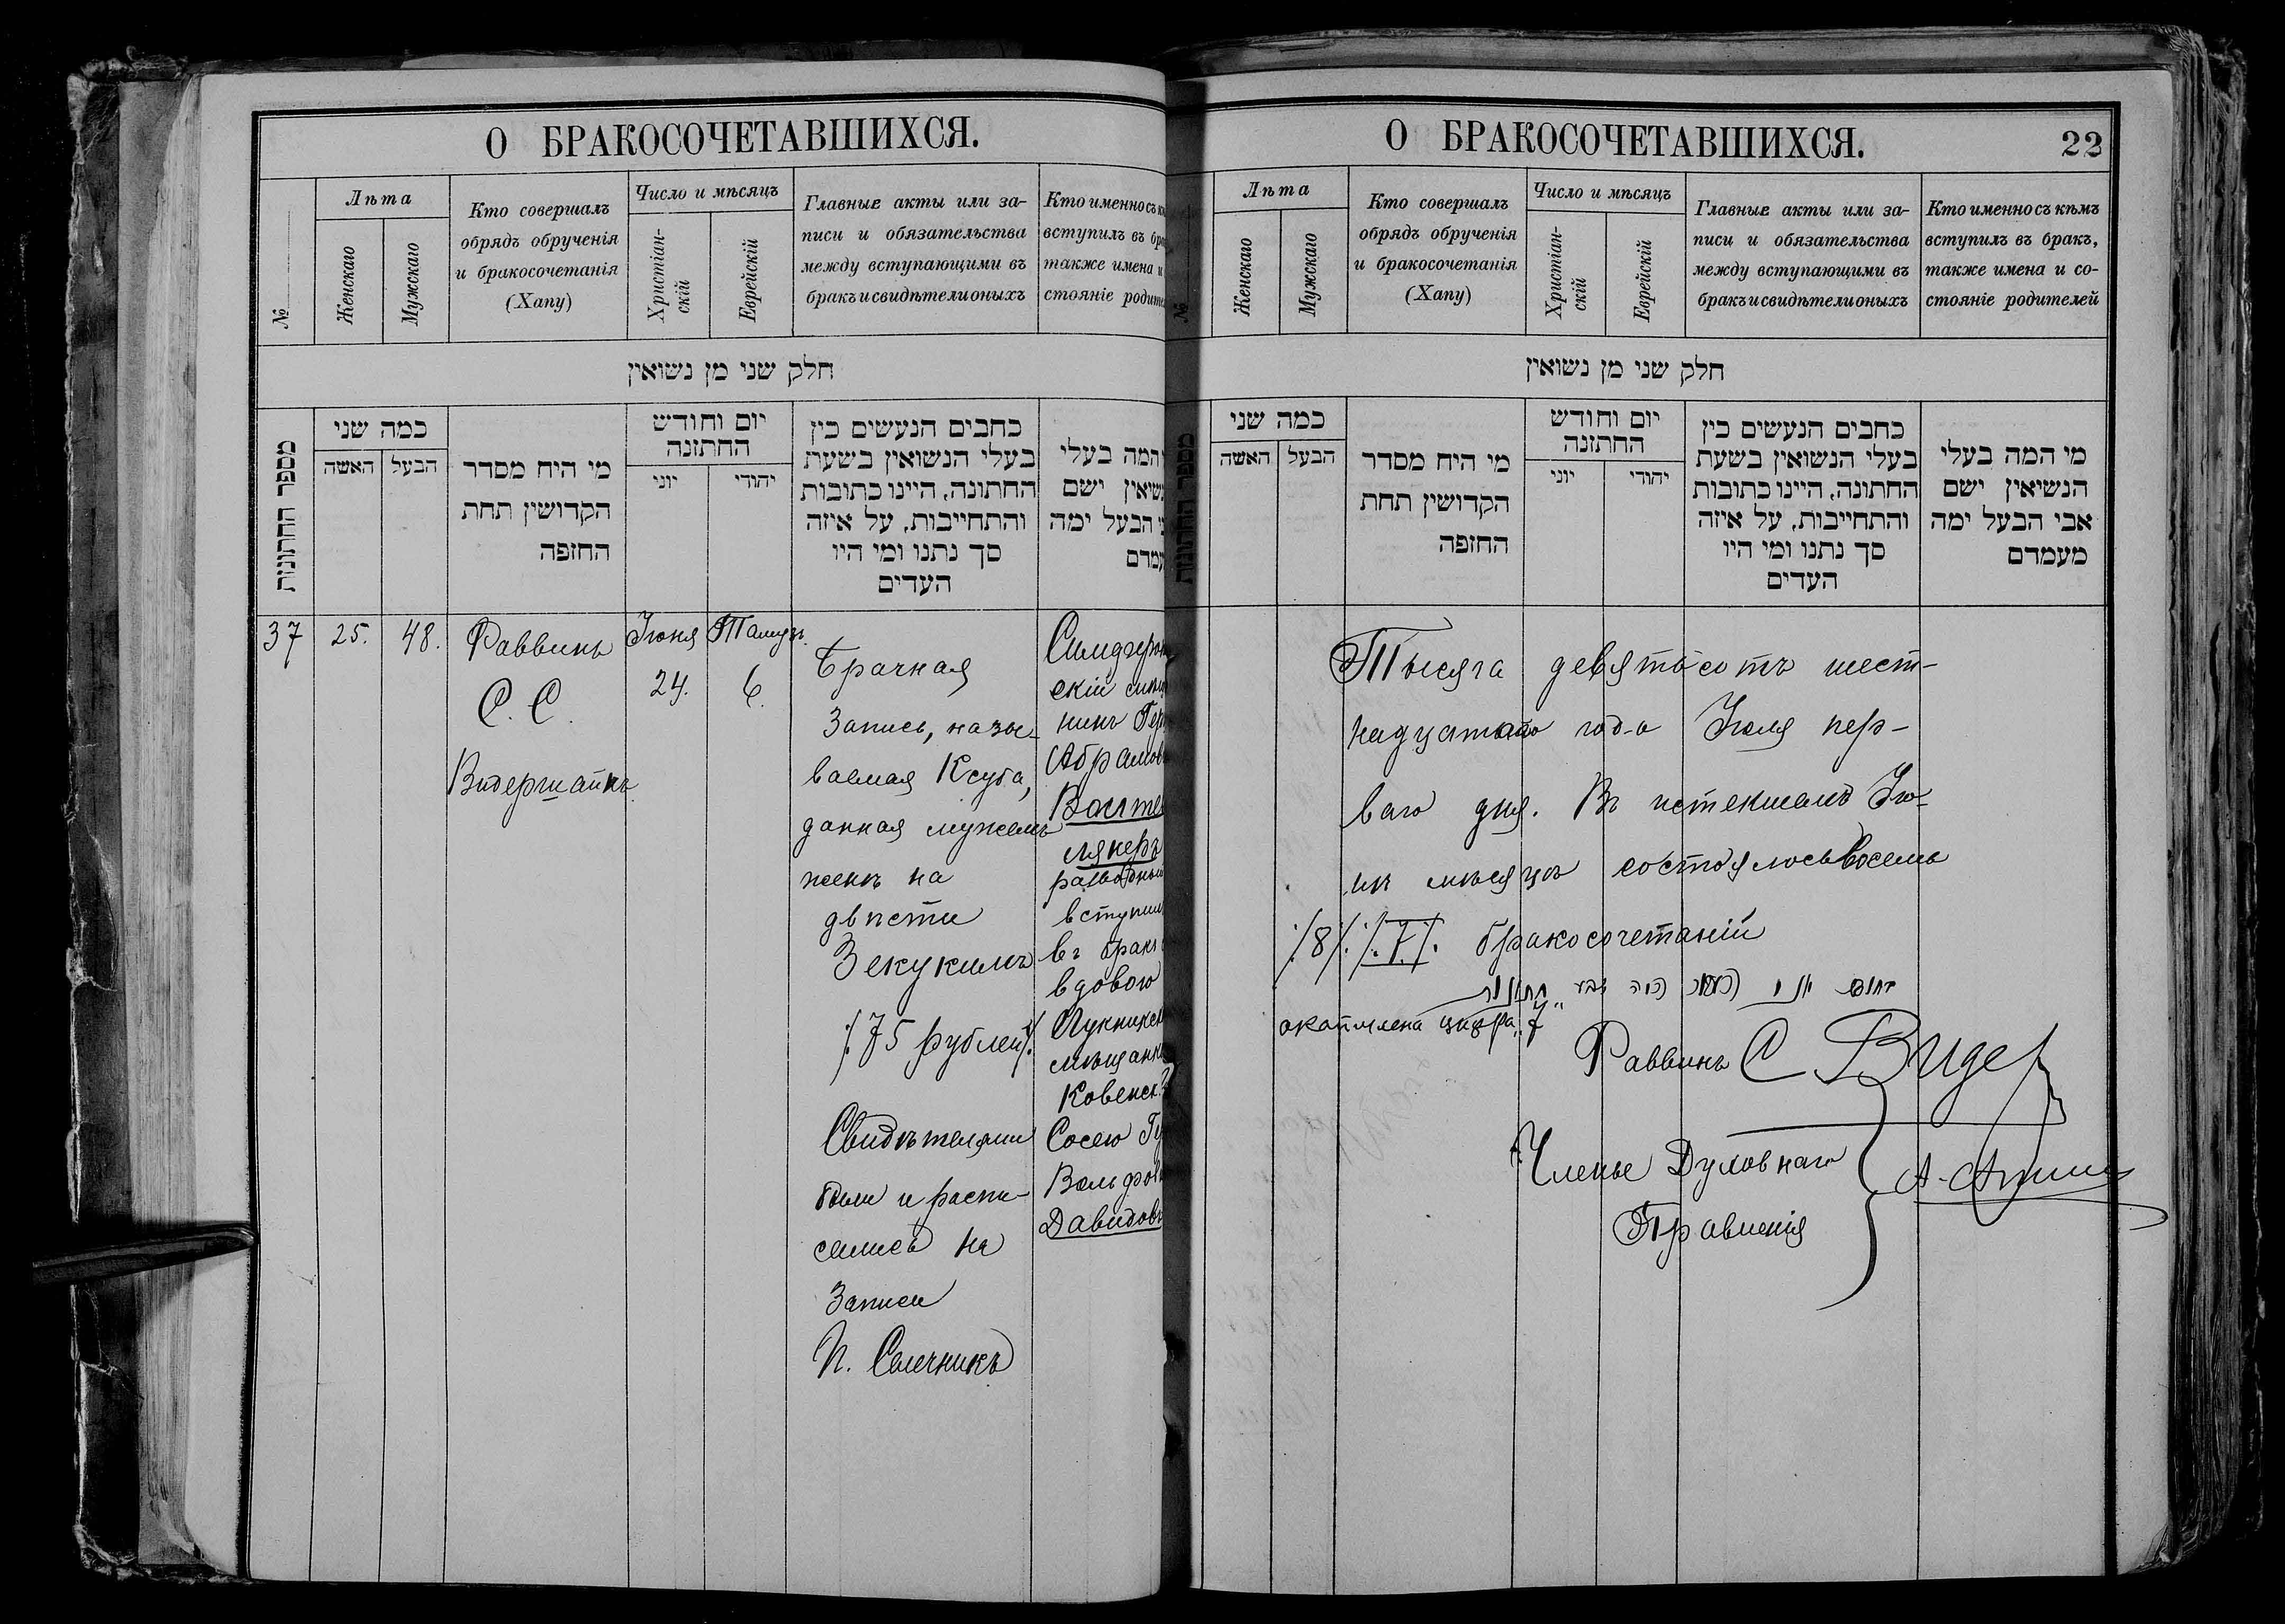 О БРАКОСОЧЕТАВШИХСЯ.
№
Лѣта
Женскаго
Мужскаго
Кто совершалъ
обрядъ обрученія
и бракосочетанія
(Хапу)
Число и мѣсяцъ
Христіан-
скій
Еврейскій
Главные акты или за-
писи и обязательства
между вступающими въ
бракъ и свидѣтели оныхъ
Кто именно съ
вступилъ въ
также имена и
стояніе
חלק שני מן נשואין
מספר החתונות
כמה שני
האשה
הבעל
מי היח מסדר
הקדושין תחת
החופה
יום וחודש
החתונה
יוני
יהודי
כתבים הנעשים בין
בעלי הנשואין בשעת
החתונה, היינו כתובות
והתחייבות, על איזה
סך נתנו ומי היו
העדים
המה בעלי
ישם
הבעל ימה
37
25.
48.
Раввинъ
С. С.
Видершайнъ
Іюня
24.
Тамузъ
6
Брачная
Запись, назы-
ваемая Ксуба,
данная мужемъ
женѣ на
двѣсти
Зекукимъ
/:75 рублей:/
Свидѣтелями
были и распи-
сались на
Записи
И. Салечникъ
скій
нинъ
вступил
въ бракъ
вдовою
Ковенск.
Сосею
Давидов
О БРАКОСОЧЕТАВШИХСЯ.
22
№
Лѣта
Женскаго
Мужскаго
Кто совершалъ
обрядъ обрученія
и бракосочетанія
(Хапу)
Число и мѣсяцъ
Христіан-
скій
Еврейскій
Главные акты или за-
писи и обязательства
между вступающими въ
бракъ и свидѣтели оныхъ
Кто именно съ кѣмъ
вступилъ въ бракъ,
также имена и со-
стояніе родителей
חלק שני מן נשואין
כמה שני
האשה
הבעל
מי היח מסדר
הקדושין תחת
החופה
יום וחודש
החתונה
יוני
יהודי
כתבים הנעשים בין
בעלי הנשואין בשעת
החתונה, היינו כתובות
והתחייבות, על איזה
סך נתנו ומי היו
העדים
מי המה בעלי
הנשיאין ישם
אבי הבעל ימה
מעמדם
Тысяча девятьсотъ шест-
надцатаго года Іюля пер-
ваго дня. Въ истекшемъ Ію-
нѣ мѣсяцѣ состоялось восемь
/:8/: /:7:/. бракосочетаній
חודש יוני היה שבע חתונות
цифра „7
Раввинъ С Видер
Члены Духовнаго
Правленія